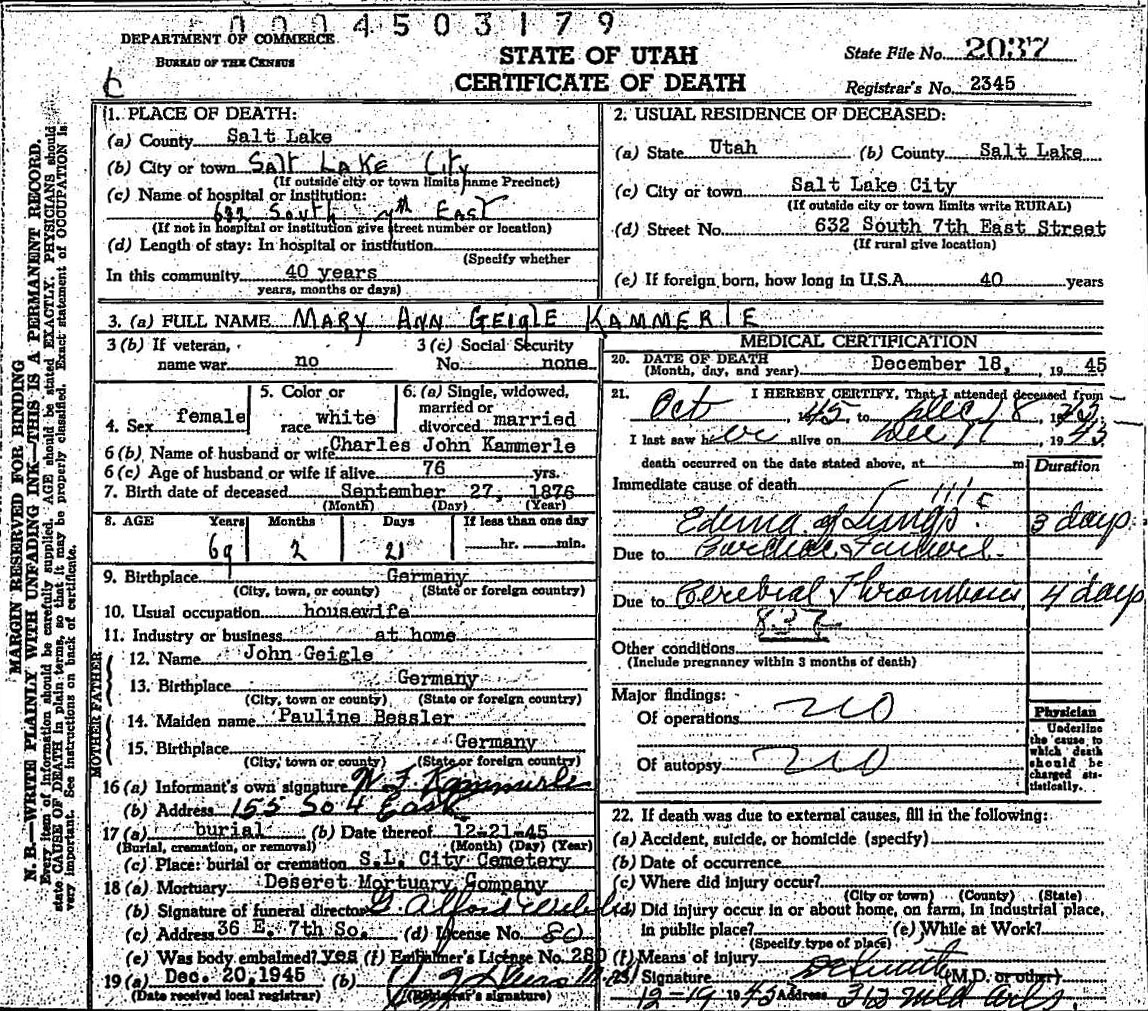 0004503179
DEPARTMENT OF COMMERCE
BUREAU OF THE CENSUS
STATE OF UTAH
CERTIFICATE OF DEATH
State File No. 2037
Registrar's No. 2345
MARGIN RESERVED FOR BINDING
N. B.—WRITE PLAINLY WITH UNFADING INK—THIS IS A PERMANENT RECORD.
Every item of information should be carefully supplied. AGE should be stated EXACTLY. PHYSICIANS should
state CAUSE OF DEATH in plain terms, so that it may be properly classified. Exact statement of OCCUPATION is
very important. See instructions on back of certificate.
1. PLACE OF DEATH:
(a) County Salt Lake
(b) City or town SALT LAKE CITY
(If outside city or town limits name Precinct)
(c) Name of hospital or institution:
632 South 7th EAST
(If not in hospital or institution give street number or location)
(d) Length of stay: In hospital or institution
(Specify whether
In this community 40 years
years, months or days)
2. USUAL RESIDENCE OF DECEASED:
(a) State Utah (b) County Salt Lake
(c) City or town Salt Lake City
(If outside city or town limits write RURAL)
(d) Street No. 632 South 7th East Street
(If rural give location)
(e) If foreign born, how long in U.S.A. 40 years
3. (a) FULL NAME MARY ANN GEIGLE KAMMERLE
3 (b) If veteran, name war no
3 (c) Social Security No. none
4. Sex female
5. Color or race white
6. (a) Single, widowed, married or divorced married
6 (b) Name of husband or wife Charles John Kammerle
6 (c) Age of husband or wife if alive 76 yrs.
7. Birth date of deceased September 27, 1876
(Month) (Day) (Year)
8. AGE Years Months Days If less than one day
69 2 21 hr. min.
9. Birthplace Germany
(City, town, or county) (State or foreign country)
10. Usual occupation housewife
11. Industry or business at home
FATHER
12. Name John Geigle
13. Birthplace Germany
(City, town or county) (State or foreign country)
MOTHER
14. Maiden name Pauline Bessler
15. Birthplace Germany
(City, town or county) (State or foreign country)
16 (a) Informant's own signature Kammerle
(b) Address 155 So 4 East
17 (a) burial (b) Date thereof 12-21-45
(Burial, cremation, or removal) (Month) (Day) (Year)
(c) Place: burial or cremation S.L. City Cemetery
18 (a) Mortuary Deseret Mortuary Company
(b) Signature of funeral director
(c) Address 36 E. 7th So. (d) License No. 80
(e) Was body embalmed? yes (f) Embalmer's License No. 280
19 (a) Dec. 20, 1945 (b)
(Date received local registrar) (Registrar's signature)
MEDICAL CERTIFICATION
20. DATE OF DEATH
(Month, day, and year) December 18, 19 45
21. I HEREBY CERTIFY, That I attended deceased from
Oct 1945 to Dec 18 19
I last saw her alive on Dec 17, 19
death occurred on the date stated above, at m
Duration
Immediate cause of death
Edema of Lungs 3 days
Due to Cardiac Failure
Due to Cerebral Thrombosis 4 days
Other conditions
(Include pregnancy within 3 months of death)
Major findings:
Of operations no
Of autopsy no
Physician
Underline
the cause to
which death
should be
charged sta-
tistically.
22. If death was due to external causes, fill in the following:
(a) Accident, suicide, or homicide (specify)
(b) Date of occurrence
(c) Where did injury occur?
(City or town) (County) (State)
(d) Did injury occur in or about home, on farm, in industrial place,
in public place? (e) While at Work?
(Specify type of place)
(f) Means of injury
(23) Signature (M.D. or other)
12-19 1945 Address